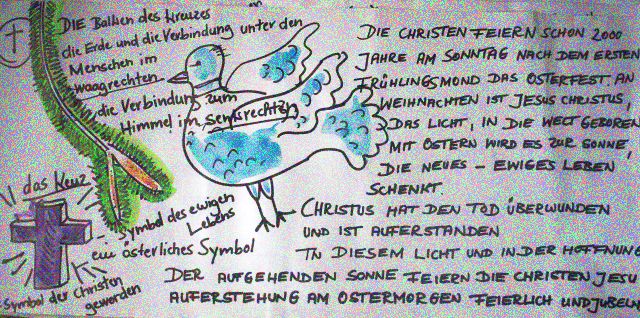 DIE Balken des Kreuzes
die Erde und die Verbindung unter den
Menschen im
waagrechten
die Verbindung zum
Himmel im senkrechten
DIE CHRISTEN FEIERN SCHON 2000
JAHRE AM SONNTAG NACH DEM ERSTEN
FRÜHLINGSMOND DAS OSTERFEST. AN
WEIHNACHTEN IST JESUS CHRISTUS,
DAS LICHT, IN DIE WELT GEBOREN
MIT OSTERN WIRD ES ZUR SONNE,
DIE NEUES - EWIGES LEBEN
SCHENKT.
CHRISTUS HAT DEN TOD ÜBERWUNDEN
UND IST AUFERSTANDEN
IN DIESEM LICHT UND IN DER HOFFNUNG
DER AUFGEHENDEN SONNE FEIERN DIE CHRISTEN JESU
AUFERSTEHUNG AM OSTERMORGEN FEIERLICH UND JUBELN
das Keuz
Symbol des ewigen
Lebens
ein österliches Symbol
Symbol der Christen
geworden